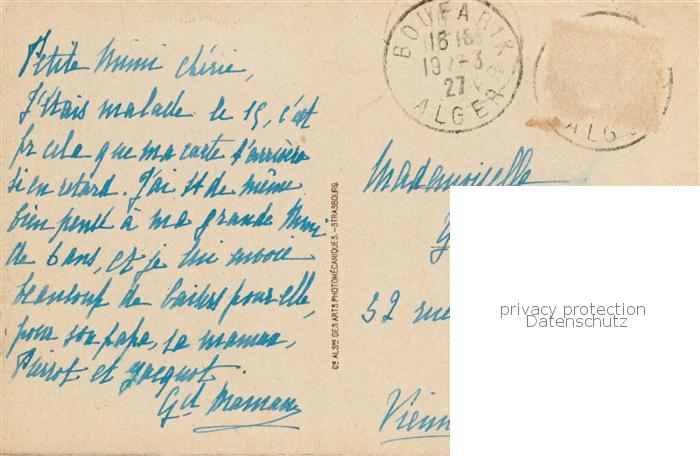 Petite Mimi chérie,
J'étais malade le 15, c'est
pr cela que ma carte t'arrivera
si en retard. J'ai tt de même
bien pensé à ma grande Mimi
de 6 ans, et je lui envoie
beaucoup de baisers pour elle,
pour son papa, sa maman,
Pierrot et Jacquot.
Gd Maman
Cie ALSne DES ARTS PHOTOMÉCANIQUES.-STRASBOURG
BOUFARIK
19 7-3
27
ALGER
ALG
Mademoiselle
32 rue
Vienn
privacy protection
Datenschutz